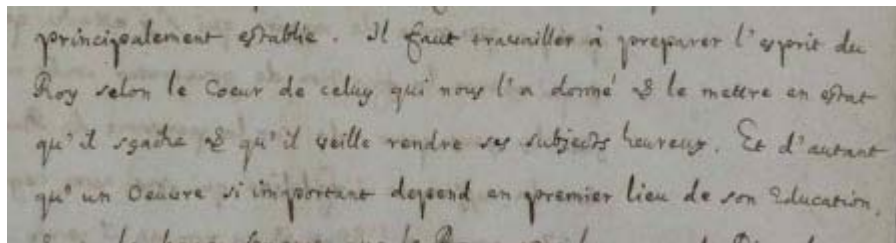 principalement establie. Il faut travailler à preparer l'esprit du
Roy selon le Coeur de celuy qui nous l'a donné & le mettre en estat
qu'il sçache & qu'il veille rendre ses subjects heureux. Et d'autant
qu'un Oeuvre si important depend en premier lieu de son Education,